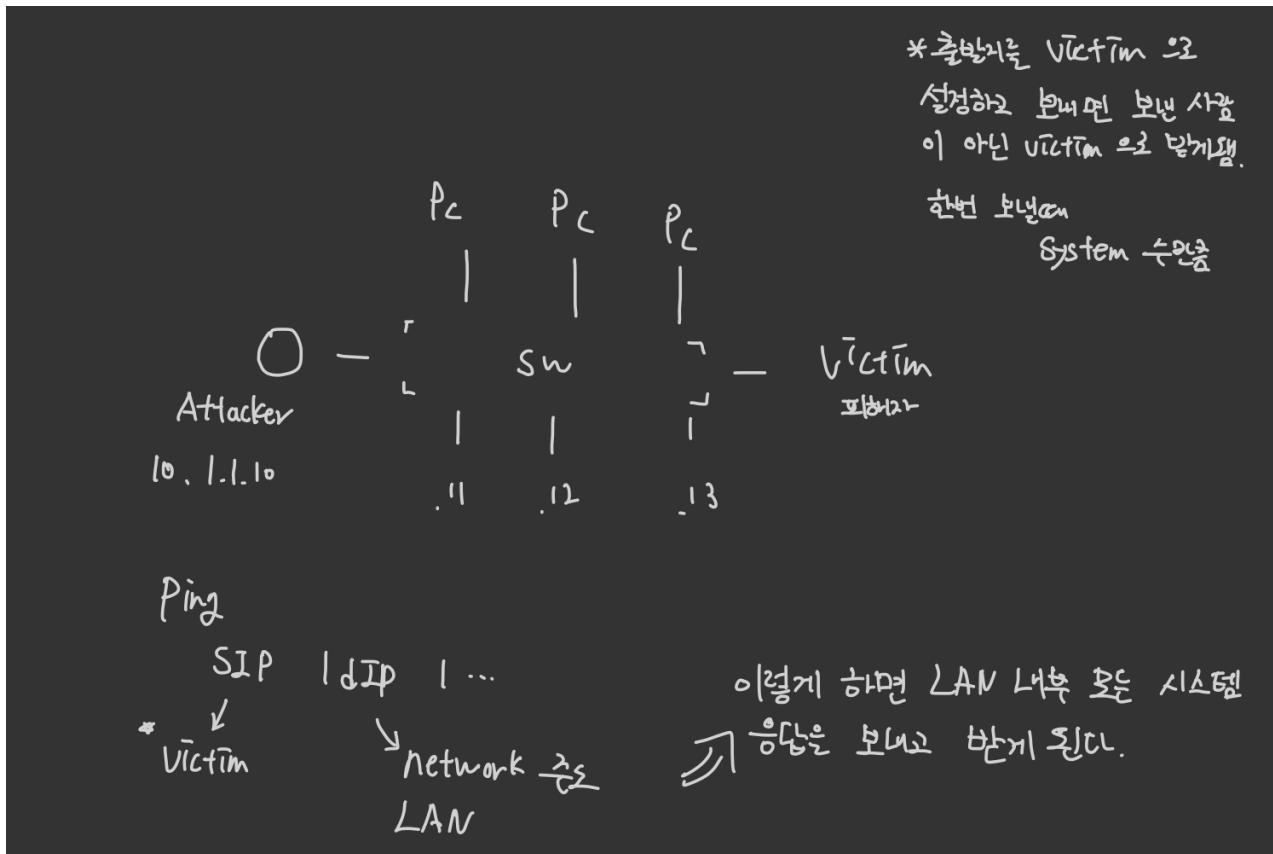 *출발지를 victim 으로
설정하고 보내면 보낸 사람
이 아닌 victim 으로 받게됨.
한번 보낼때
System 수만큼
PC PC PC
SW
Victim
피해자
Attacker
10.1.1.10
.11 .12 .13
Ping
SIP | dIP | ...
* Victim
network 주소
LAN
이렇게 하면 LAN 내부 모든 시스템
응답을 보내고 받게 된다.